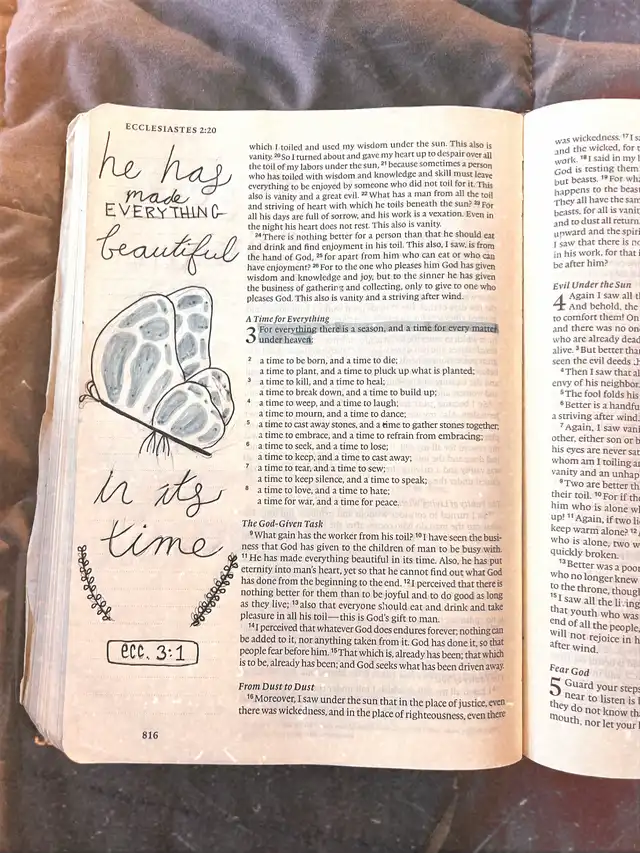 ECCLESIASTES 2:20
he has
made
EVERYTHING
beautiful
in its
time
ecc. 3:1
816
which I toiled and used my wisdom under the sun. This also is
vanity. 20 So I turned about and gave my heart up to despair over all
the toil of my labors under the sun, 21 because sometimes a person
who has toiled with wisdom and knowledge and skill must leave
everything to be enjoyed by someone who did not toil for it. This
also is vanity and a great evil. 22 What has a man from all the toil
and striving of heart with which he toils beneath the sun? 23 For
all his days are full of sorrow, and his work is a vexation. Even in
the night his heart does not rest. This also is vanity.
24 There is nothing better for a person than that he should eat
and drink and find enjoyment in his toil. This also, I saw, is from
the hand of God, 25 for apart from him who can eat or who can
have enjoyment? 26 For to the one who pleases him God has given
wisdom and knowledge and joy, but to the sinner he has given
the business of gathering and collecting, only to give to one who
pleases God. This also is vanity and a striving after wind.
A Time for Everything
3 For everything there is a season, and a time for every matter
under heaven:
2 a time to be born, and a time to die;
a time to plant, and a time to pluck up what is planted;
3 a time to kill, and a time to heal;
a time to break down, and a time to build up;
4 a time to weep, and a time to laugh;
a time to mourn, and a time to dance;
5 a time to cast away stones, and a time to gather stones together;
a time to embrace, and a time to refrain from embracing;
6 a time to seek, and a time to lose;
a time to keep, and a time to cast away;
7 a time to tear, and a time to sew;
a time to keep silence, and a time to speak;
8 a time to love, and a time to hate;
a time for war, and a time for peace.
The God-Given Task
9 What gain has the worker from his toil? 10 I have seen the busi-
ness that God has given to the children of man to be busy with.
11 He has made everything beautiful in its time. Also, he has put
eternity into man's heart, yet so that he cannot find out what God
has done from the beginning to the end. 12 I perceived that there is
nothing better for them than to be joyful and to do good as long
as they live; 13 also that everyone should eat and drink and take
pleasure in all his toil—this is God's gift to man.
14 I perceived that whatever God does endures forever; nothing can
be added to it, nor anything taken from it. God has done it, so that
people fear before him. 15 That which is, already has been; that which
is to be, already has been; and God seeks what has been driven away.
From Dust to Dust
16 Moreover, I saw under the sun that in the place of justice, even
there was wickedness, and in the place of righteousness, even there
was wickedness. 17 I
and the wicked, for
work. 18 I said in my
God is testing them
but beasts. 19 For wha
happens to the beasts
They all have the sam
beasts, for all is vanity
and to dust all return
upward and the spirit
I saw that there is no
in his work, for that i
be after him?
Evil Under the Sun
4 Again I saw all
And behold, the
to comfort them! On
and there was no on
who are already dead
alive. 3 But better than
seen the evil deeds
4 Then I saw that al
envy of his neighbor
5 The fool folds his
6 Better is a handfu
a striving after wind.
7 Again, I saw vani
other, either son or b
his eyes are never sat
whom am I toiling an
vanity and an unhap
9 Two are better th
their toil. 10 For if th
him who is alone wh
up! 11 Again, if two li
keep warm alone? 12
who is alone, two w
quickly broken.
13 Better was a poor
who no longer knew
to the throne, though
15 I saw all the living
that youth who was
end of all the people,
will not rejoice in h
after wind.
Fear God
5 Guard your steps
near to listen is
they do not know tha
mouth, nor let your